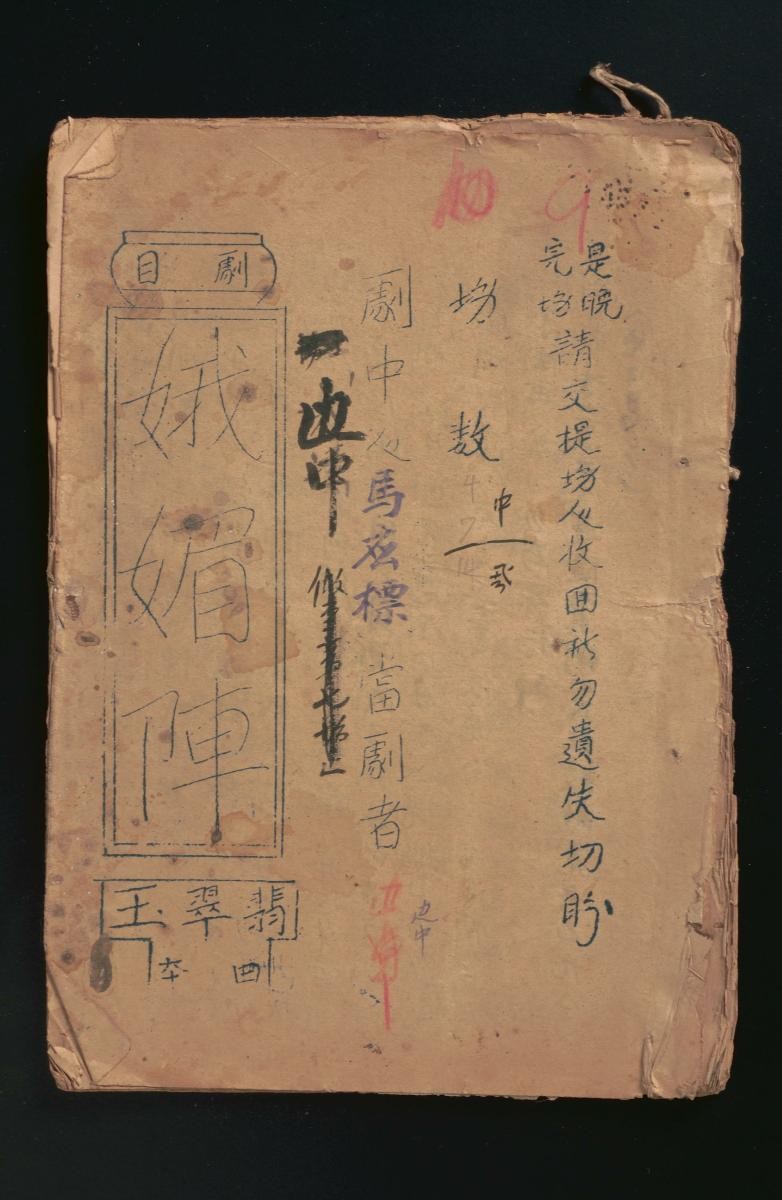 是晚
完場
請交提場人收回祈勿遺失切盼
場數
中
劇中人馬宏標當劇者
边中
边中
劇目
娥媚陣
翡翠玉
曲本